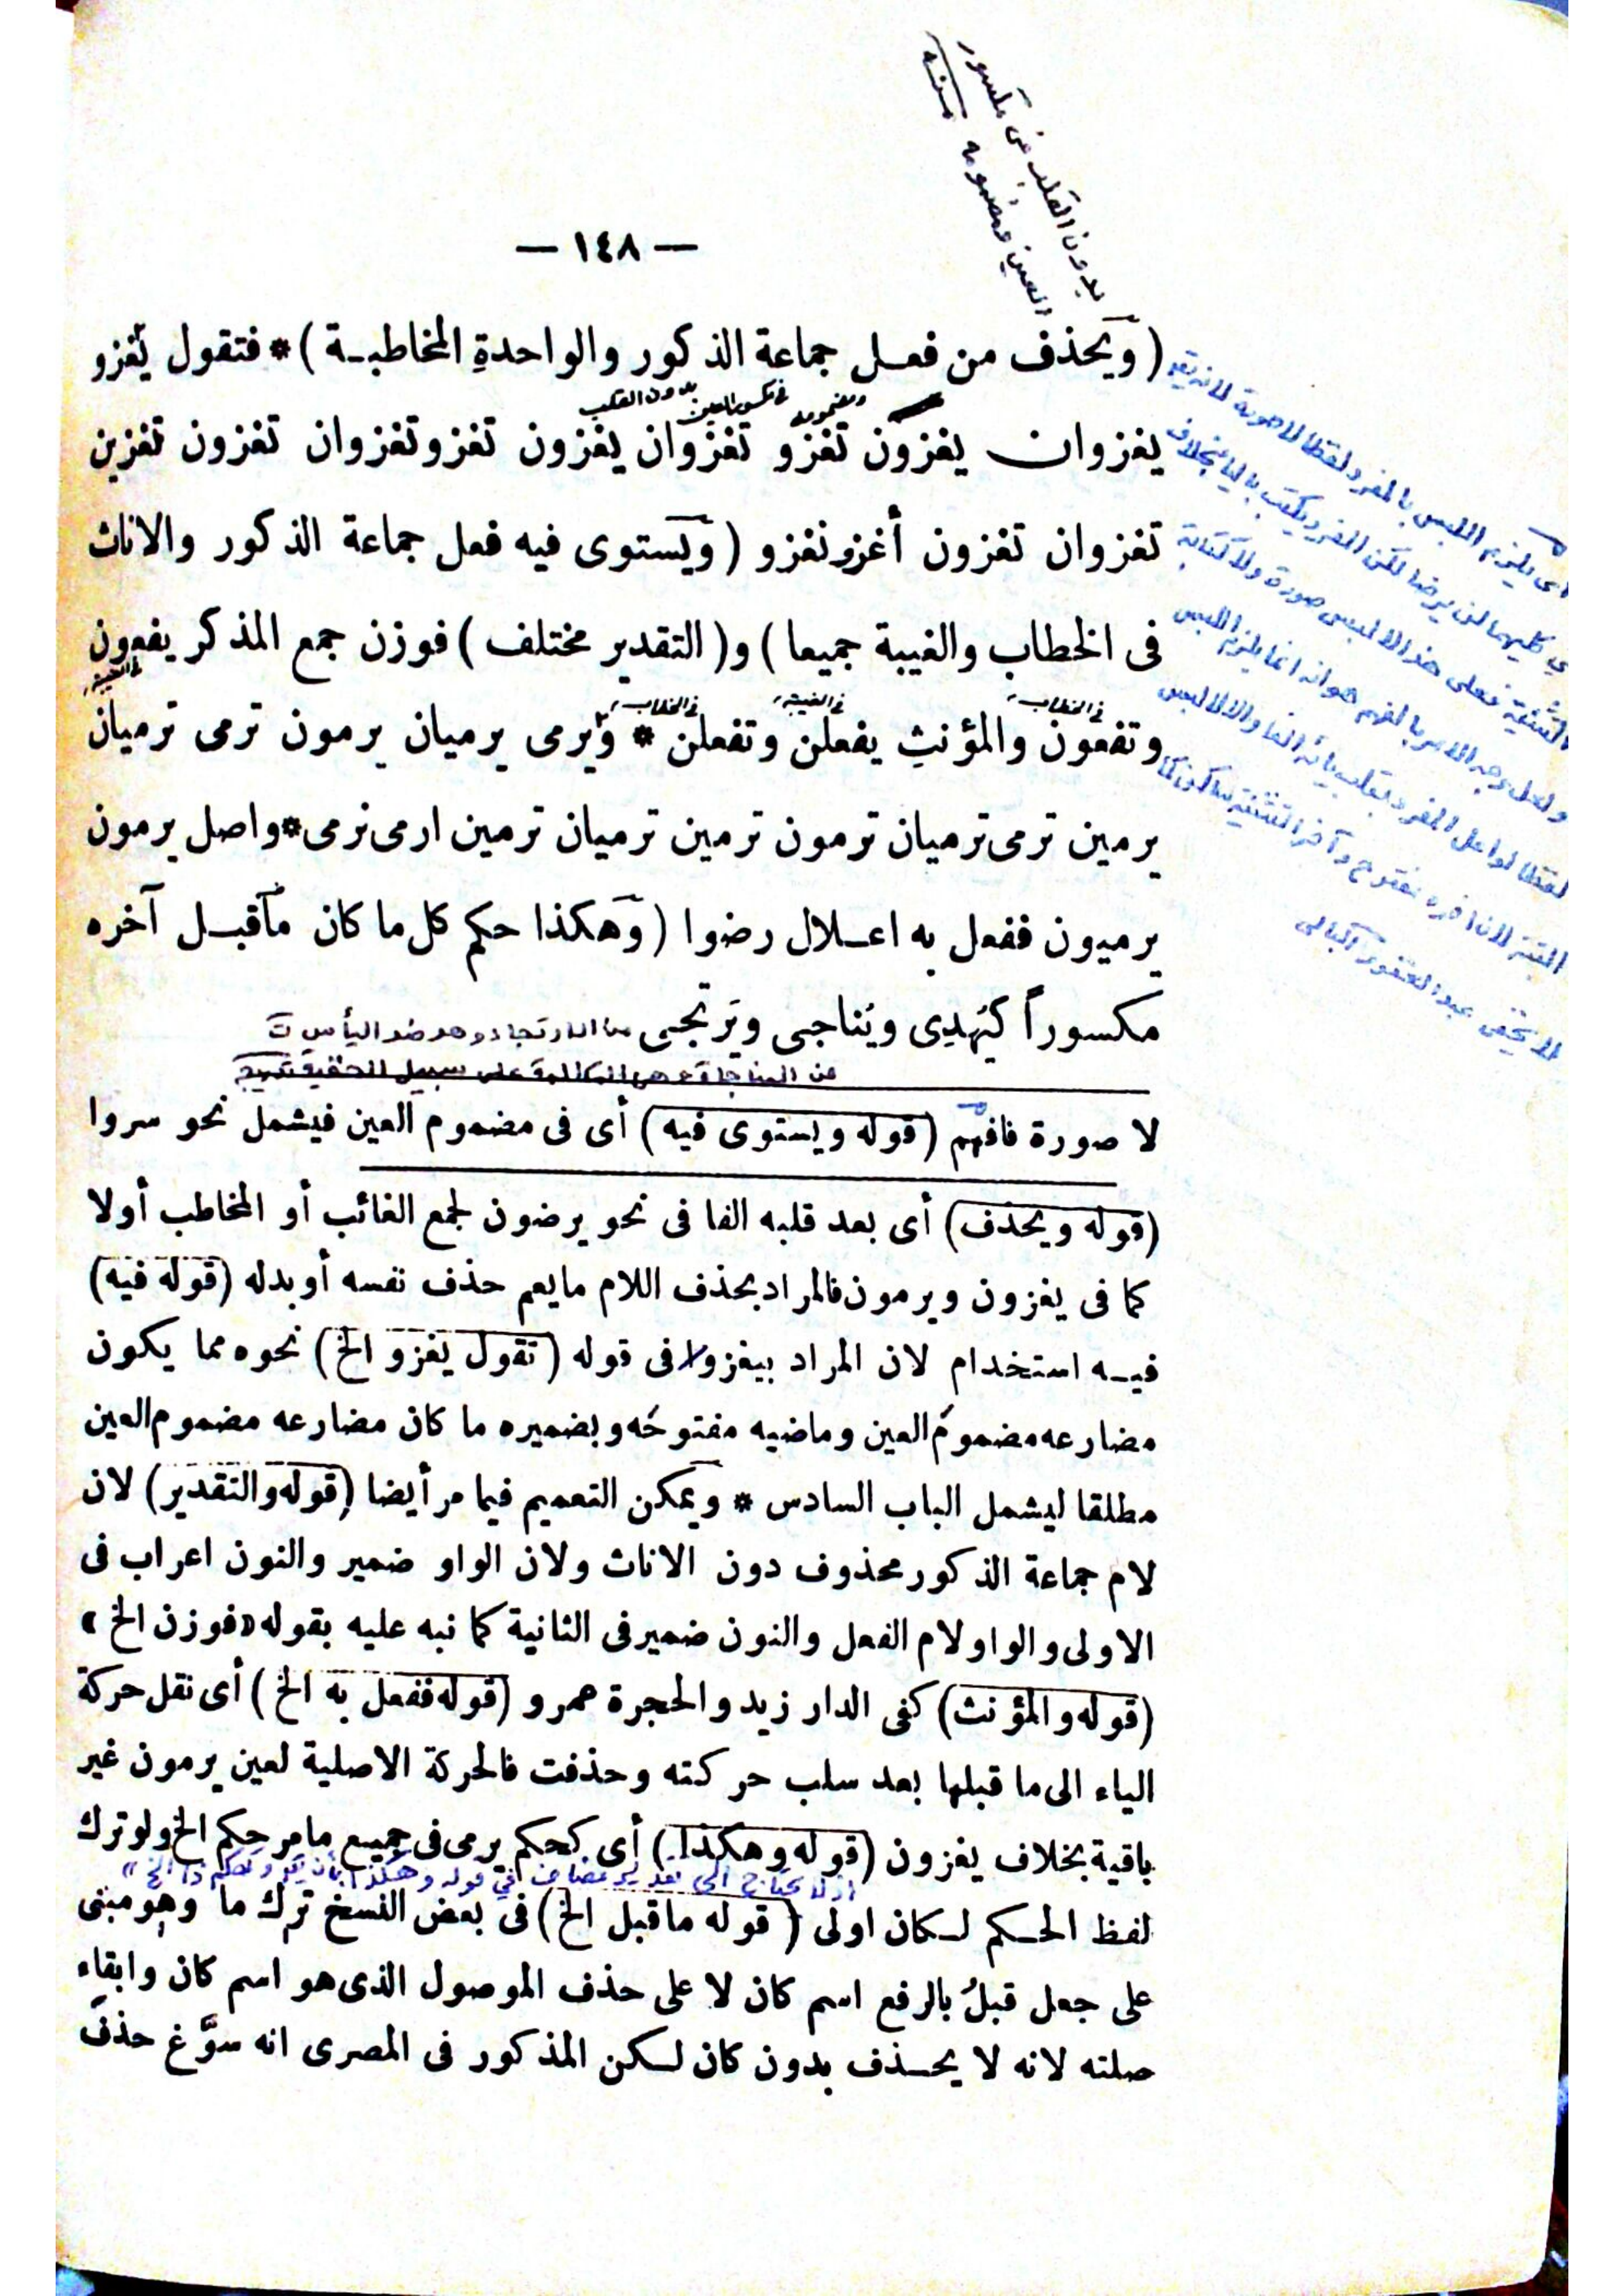 بدون القلب في مكسور
العين ومضمومه
— ١٤٨ —
(ويحذف من فعل جماعة الذكور والواحدةِ المخاطبة) * فتقول يغزو
ومضمومه في مكسور العين بدون القلب
يغزوان يغزون تغزو تغزوان يغزون تغزو تغزوان تغزون تغزين
تغزوان تغزون أغزو نغزو (ويستوى فيه فعل جماعة الذكور والاناث
فى الخطاب والغيبة جميعا) و(التقدير مختلف) فوزن جمع المذكر يفعون
في الغيبة
في الخطاب في الغيبة في الخطاب
وتفعون والمؤنثِ يفعلن وتفعلن * وَيرمى يرميان يرمون ترمى ترميان
يرمين ترمى ترميان ترمون ترمين ترميان ترمين ارمى نرمى * واصل يرمون
يرميون ففعل به اعلال رضوا (وهكذا حكم كل ما كان ما قبل آخره
مكسوراً كيُهدِى ويُناجى ويَرتجى من الارتجاء وهو ضد اليأس
من المناجاة وهي المكالمة على سبيل الخفية
لا صورة فافهم (قوله ويستوى فيه) أى فى مضموم العين فيشمل نحو سروا
(قوله ويحذف) أى بعد قلبه الفا فى نحو يرضون لجمع الغائب أو المخاطب أولا
كما فى يغزون ويرمون فالمراد بحذف اللام ما يعم حذف نفسه أو بدله (قوله فيه)
فيه استخدام لان المراد بيغزو فى قوله (تقول يغزو الخ) نحوه مما يكون
مضارعه مضمومَ العين وماضيه مفتوحَه وبضميره ما كان مضارعه مضموم العين
مطلقا ليشمل الباب السادس * ويمكن التعميم فيما مر أيضا (قوله والتقدير) لان
لام جماعة الذكور محذوف دون الاناث ولان الواو ضمير والنون اعراب فى
الاولى والواو لام الفعل والنون ضمير فى الثانية كما نبه عليه بقوله «فوزن الخ»
(قوله والمؤنث) كفى الدار زيد والحجرة عمرو (قوله ففعل به الخ) أى نقل حركة
الياء الى ما قبلها بعد سلب حركته وحذفت فالحركة الاصلية لعين يرمون غير
باقية بخلاف يغزون (قوله وهكذا) أى كحكم يرمى فى جميع ما مر حكم الخ ولو ترك
اذ لا يحتاج الى تقدير مضاف في قوله وهكذا
لفظ الحكم لكان اولى (قوله ما قبل الخ) فى بعض النسخ ترك ما وهو مبنى
على جعل قبلُ بالرفع اسم كان لا على حذف الموصول الذى هو اسم كان وابقاء
صلته لانه لا يحذف بدون كان لكن المذكور فى المصرى انه سوَّغ حذفَ
أي يلزم اللبس بالمفرد لفظا لا صورة